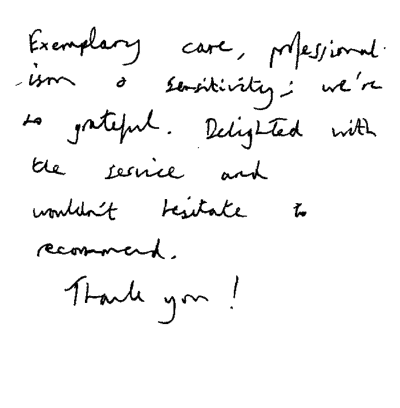 Exemplary care, professional-
-ism & sensitivity; we're
so grateful. Delighted with
the service and
wouldn't hesitate to
recommend.
Thank you!